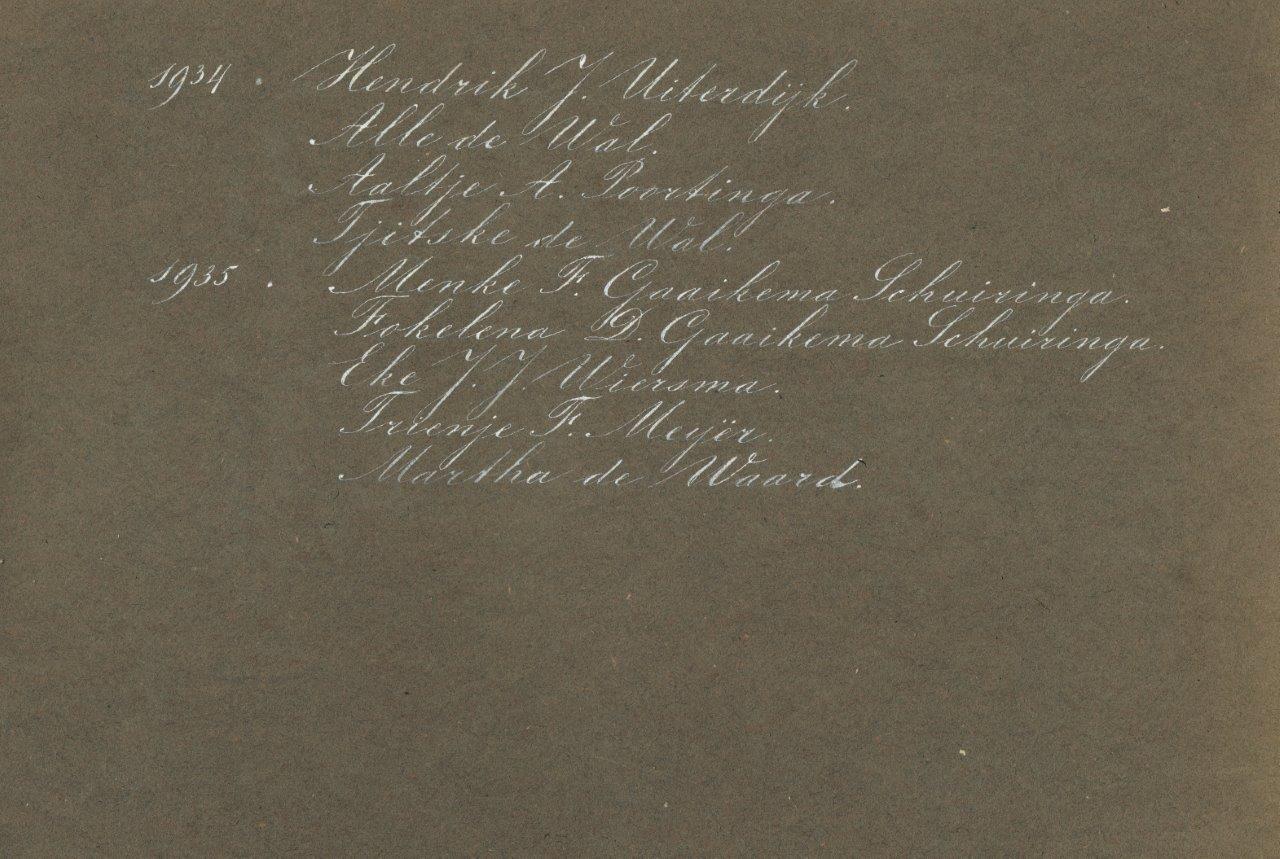 1934. Hendrik J. Uiterdijk.
Alle de Wal.
Aaltje A. Poortinga.
Tjitske de Wal.
1935. Menke F. Gaaikema Schuiringa.
Fokelena D. Gaaikema Schuiringa.
Eke J. J. Wiersma.
Trienje F. Meijer.
Martha de Waard.